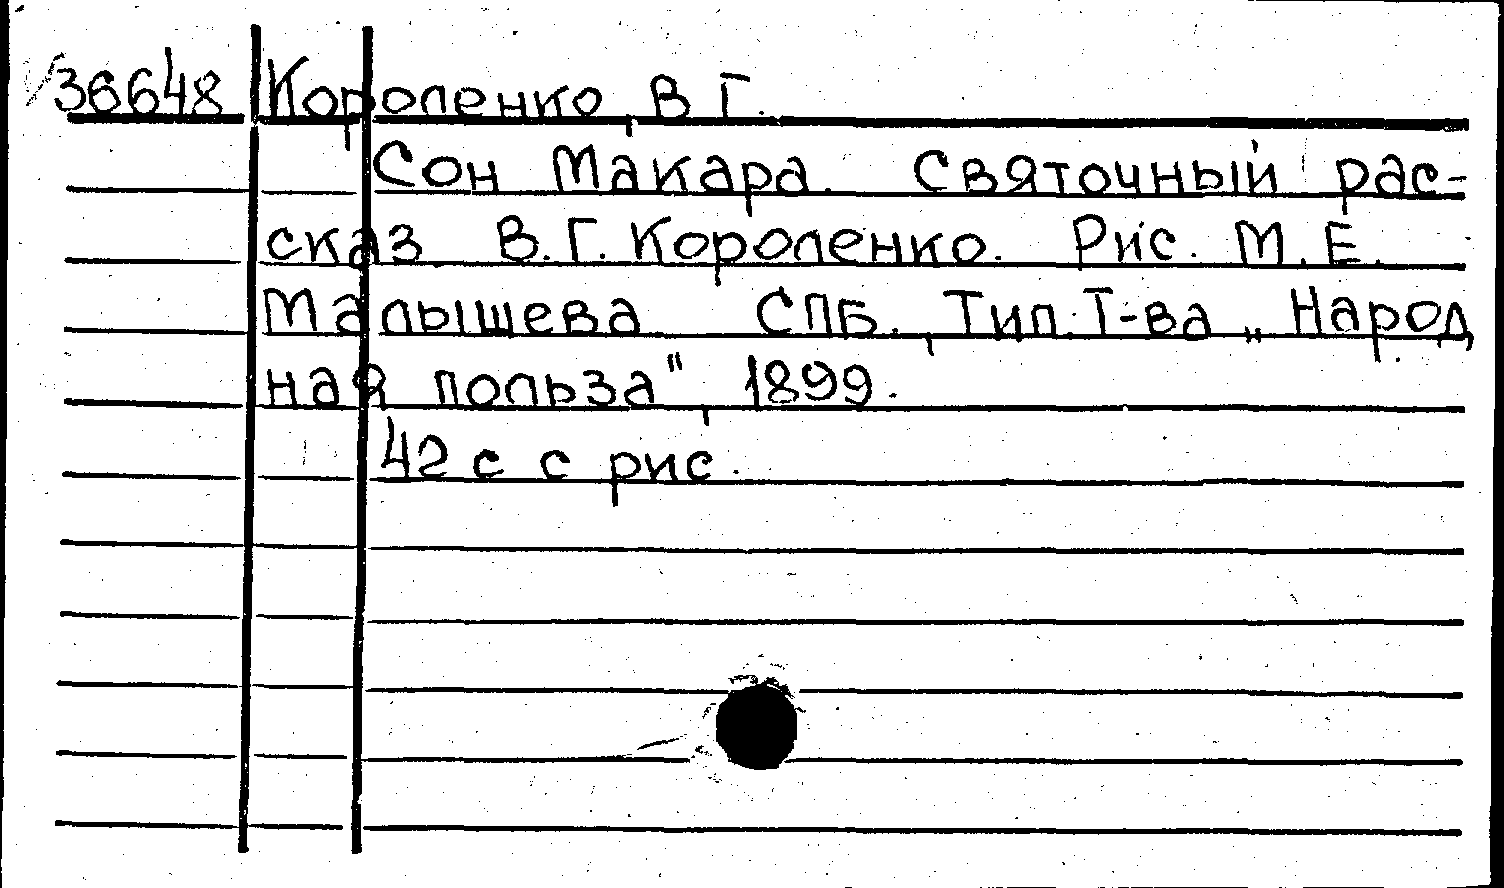 36648 Короленко, В Г.
Сон Макара. Святочный рас-
сказ В.Г. Короленко. Рис. М.Е.
Малышева СПБ., Тип. Т-ва „Народ
ная польза", 1899.
42 с с рис.